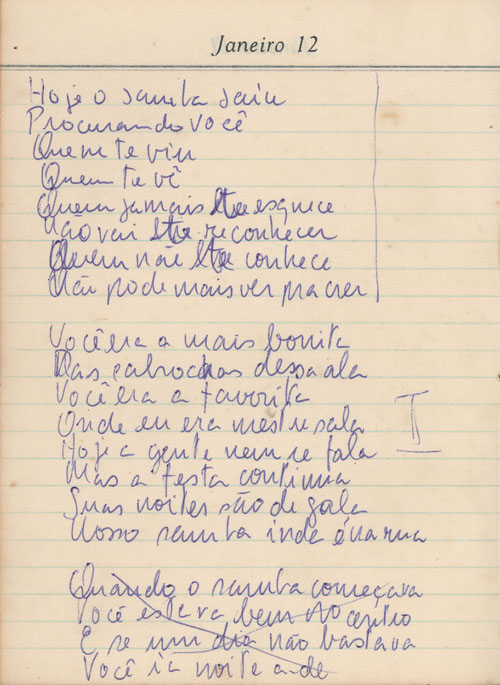 Janeiro 12
Hoje o samba saiu
Procurando você
Quem te viu
Quem te vê
Quem jamais te esquece
Não vai te reconhecer
Quem não te conhece
Não pode mais ver pra crer
Você era a mais bonita
Das cabrochas dessa ala
Você era a favorita
Onde eu era mestre sala
I
Hoje a gente nem se fala
Mas a festa continua
Suas noites são de gala
Nosso samba inda é na rua
Quando o samba começava
Você estava bem no centro
E se um dia não bastava
Você ia noite a de